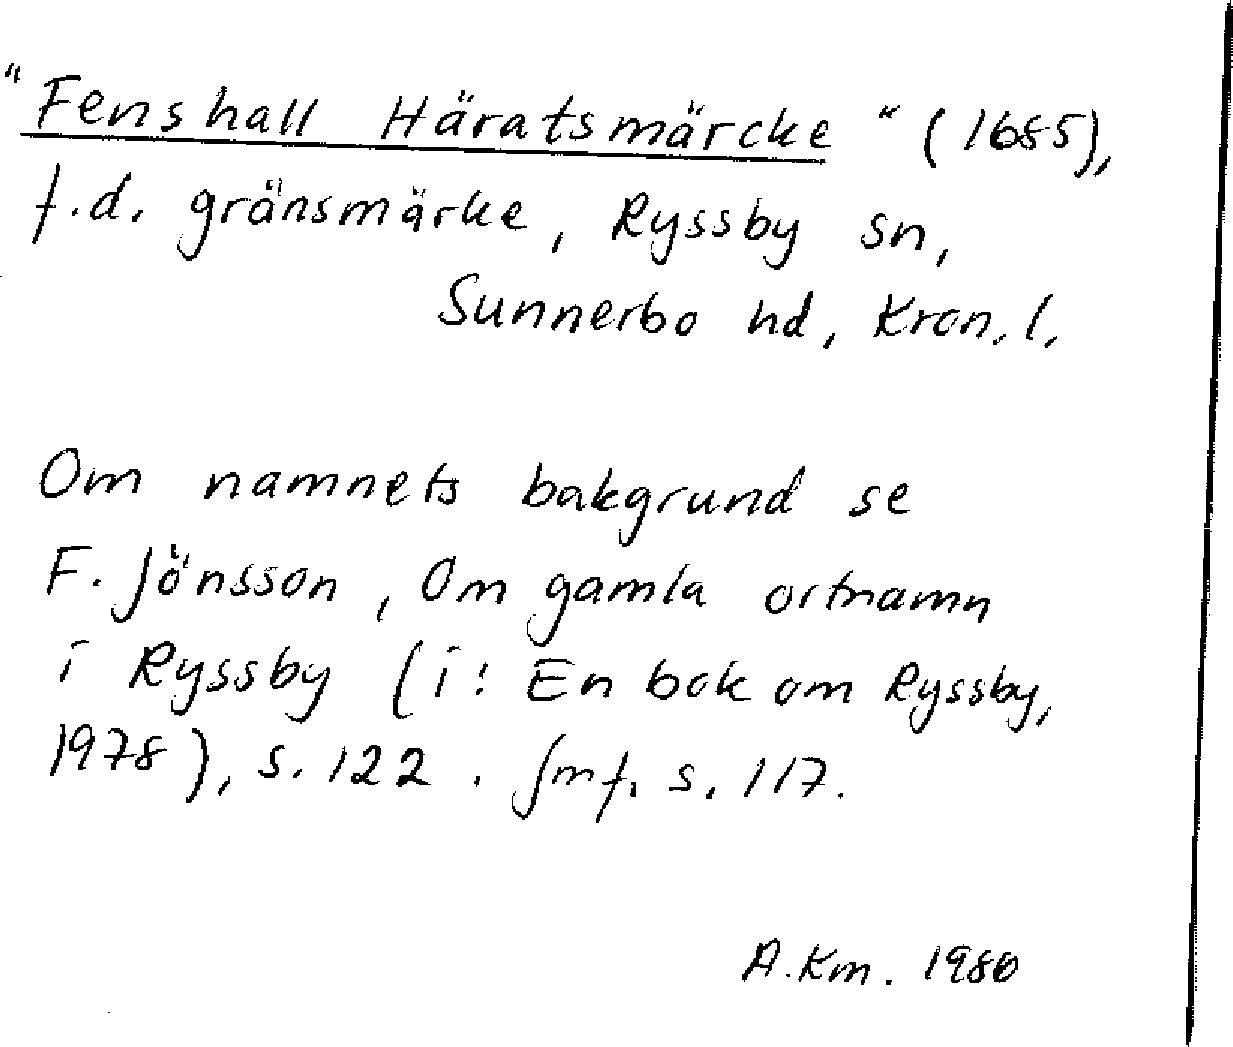 "Fenshall Häratsmärcke" (1685),
f.d. gränsmärke, Ryssby sn,
Sunnerbo hd, Kron. l.
Om namnets bakgrund se
F. Jönsson, Om gamla ortnamn
i Ryssby (i: En bok om Ryssby,
1978), s. 122. Jmf. s. 117.
A. Km. 1980